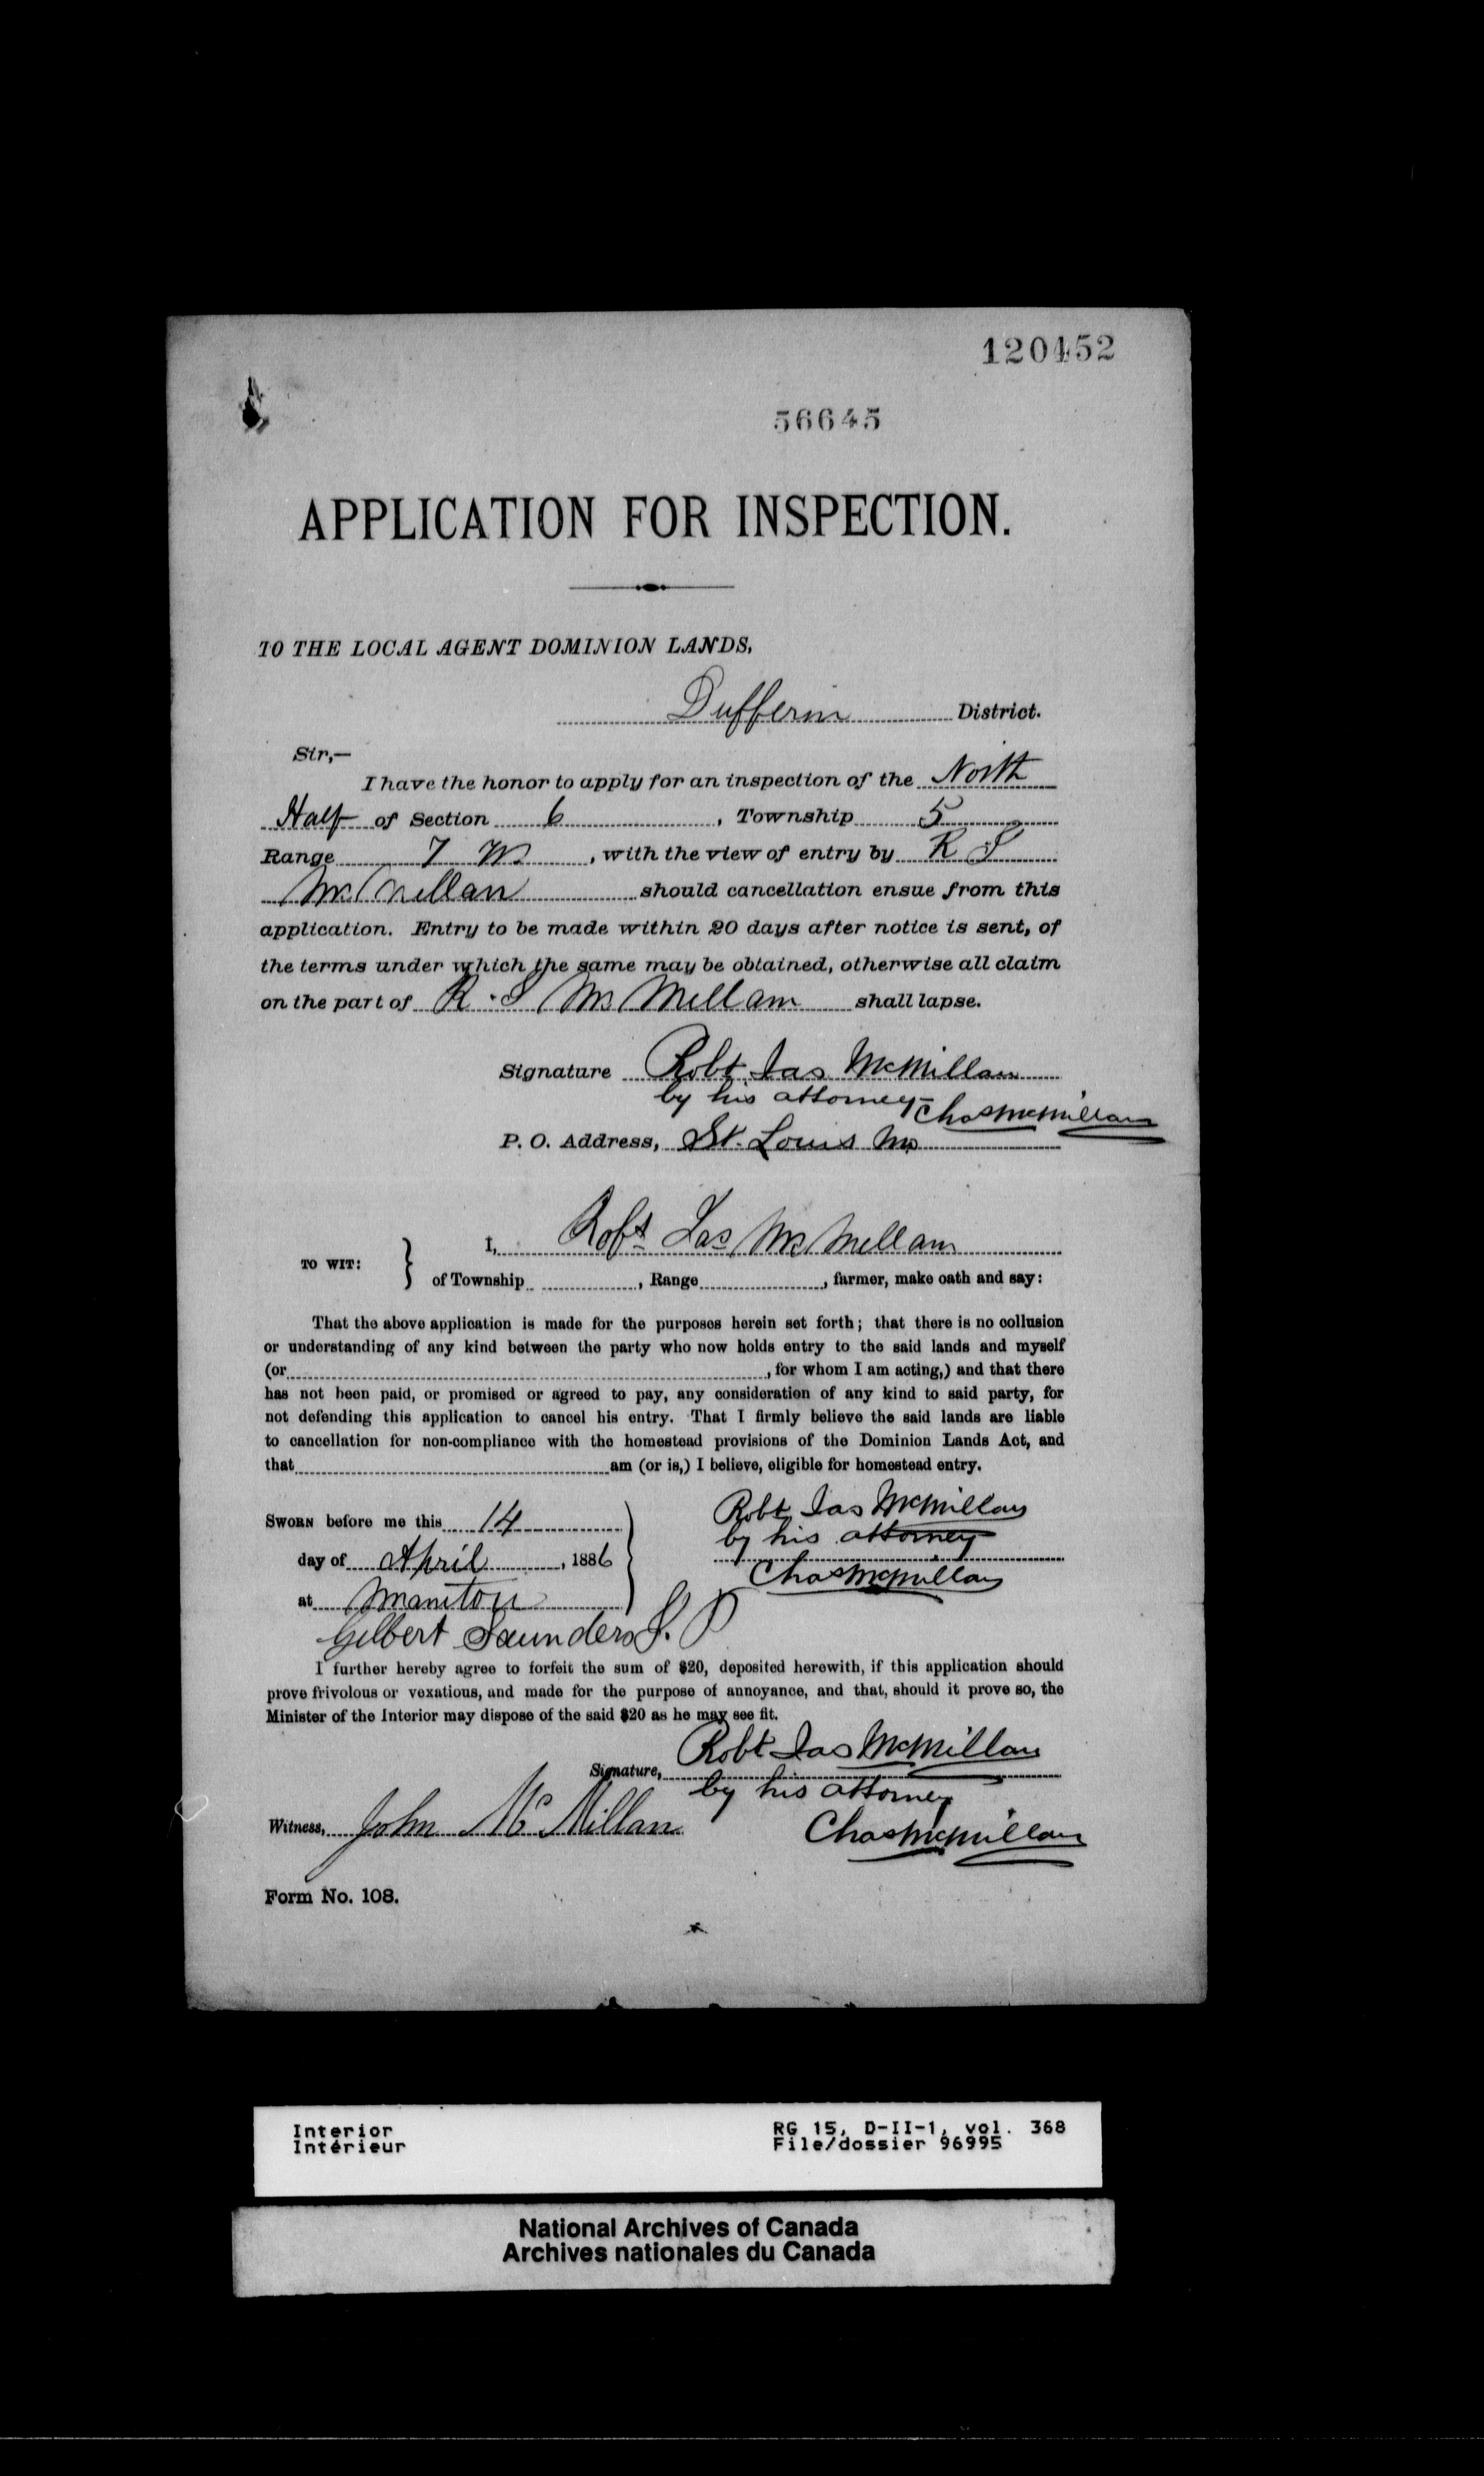 120452
56645
APPLICATION FOR INSPECTION.
TO THE LOCAL AGENT DOMINION LANDS,
Dufferin District.
Sir,—
I have the honor to apply for an inspection of the North
Half of Section 6, Township 5
Range 7 W, with the view of entry by R J
McMillan should cancellation ensue from this
application. Entry to be made within 20 days after notice is sent, of
the terms under which the same may be obtained, otherwise all claim
on the part of R. J McMillan shall lapse.
Signature Robt Jas McMillan
by his attorney Chas McMillan
P. O. Address, St. Louis Mo
I, Robt Jas McMillan
TO WIT: }
of Township , Range , farmer, make oath and say:
That the above application is made for the purposes herein set forth; that there is no collusion
or understanding of any kind between the party who now holds entry to the said lands and myself
(or , for whom I am acting,) and that there
has not been paid, or promised or agreed to pay, any consideration of any kind to said party, for
not defending this application to cancel his entry. That I firmly believe the said lands are liable
to cancellation for non-compliance with the homestead provisions of the Dominion Lands Act, and
that am (or is,) I believe, eligible for homestead entry.
SWORN before me this 14
day of April, 1886
at Manitou
Robt Jas McMillan
by his attorney
Chas McMillan
Gilbert Saunders J. P
I further hereby agree to forfeit the sum of $20, deposited herewith, if this application should
prove frivolous or vexatious, and made for the purpose of annoyance, and that, should it prove so, the
Minister of the Interior may dispose of the said $20 as he may see fit.
Signature, Robt Jas McMillan
by his attorney
Witness, John McMillan
Chas McMillan
Form No. 108.
Interior
Intérieur
RG 15, D-II-1, vol. 368
File/dossier 96995
National Archives of Canada
Archives nationales du Canada